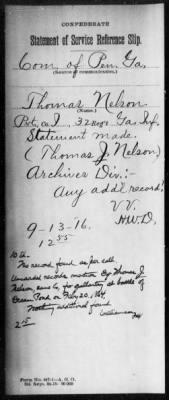 CONFEDERATE
Statement of Service Reference Slip.
Com. of Pen. Ga.
(Source of communication.)
Thomas Nelson
(Name.)
Pvt. Co. I 32 Regt Ga. Inf.
Statement made.
(Thomas J. Nelson)
Archives Div:-
Any addl record?
V.V.
H.W.D.
9-13-16.
12 55
The record found as per call.
Unmarked records mention Pvt Thomas J.
Nelson, for gallantry at battle of
Ocean Pond on Feby 20, 64.
Nothing additional found